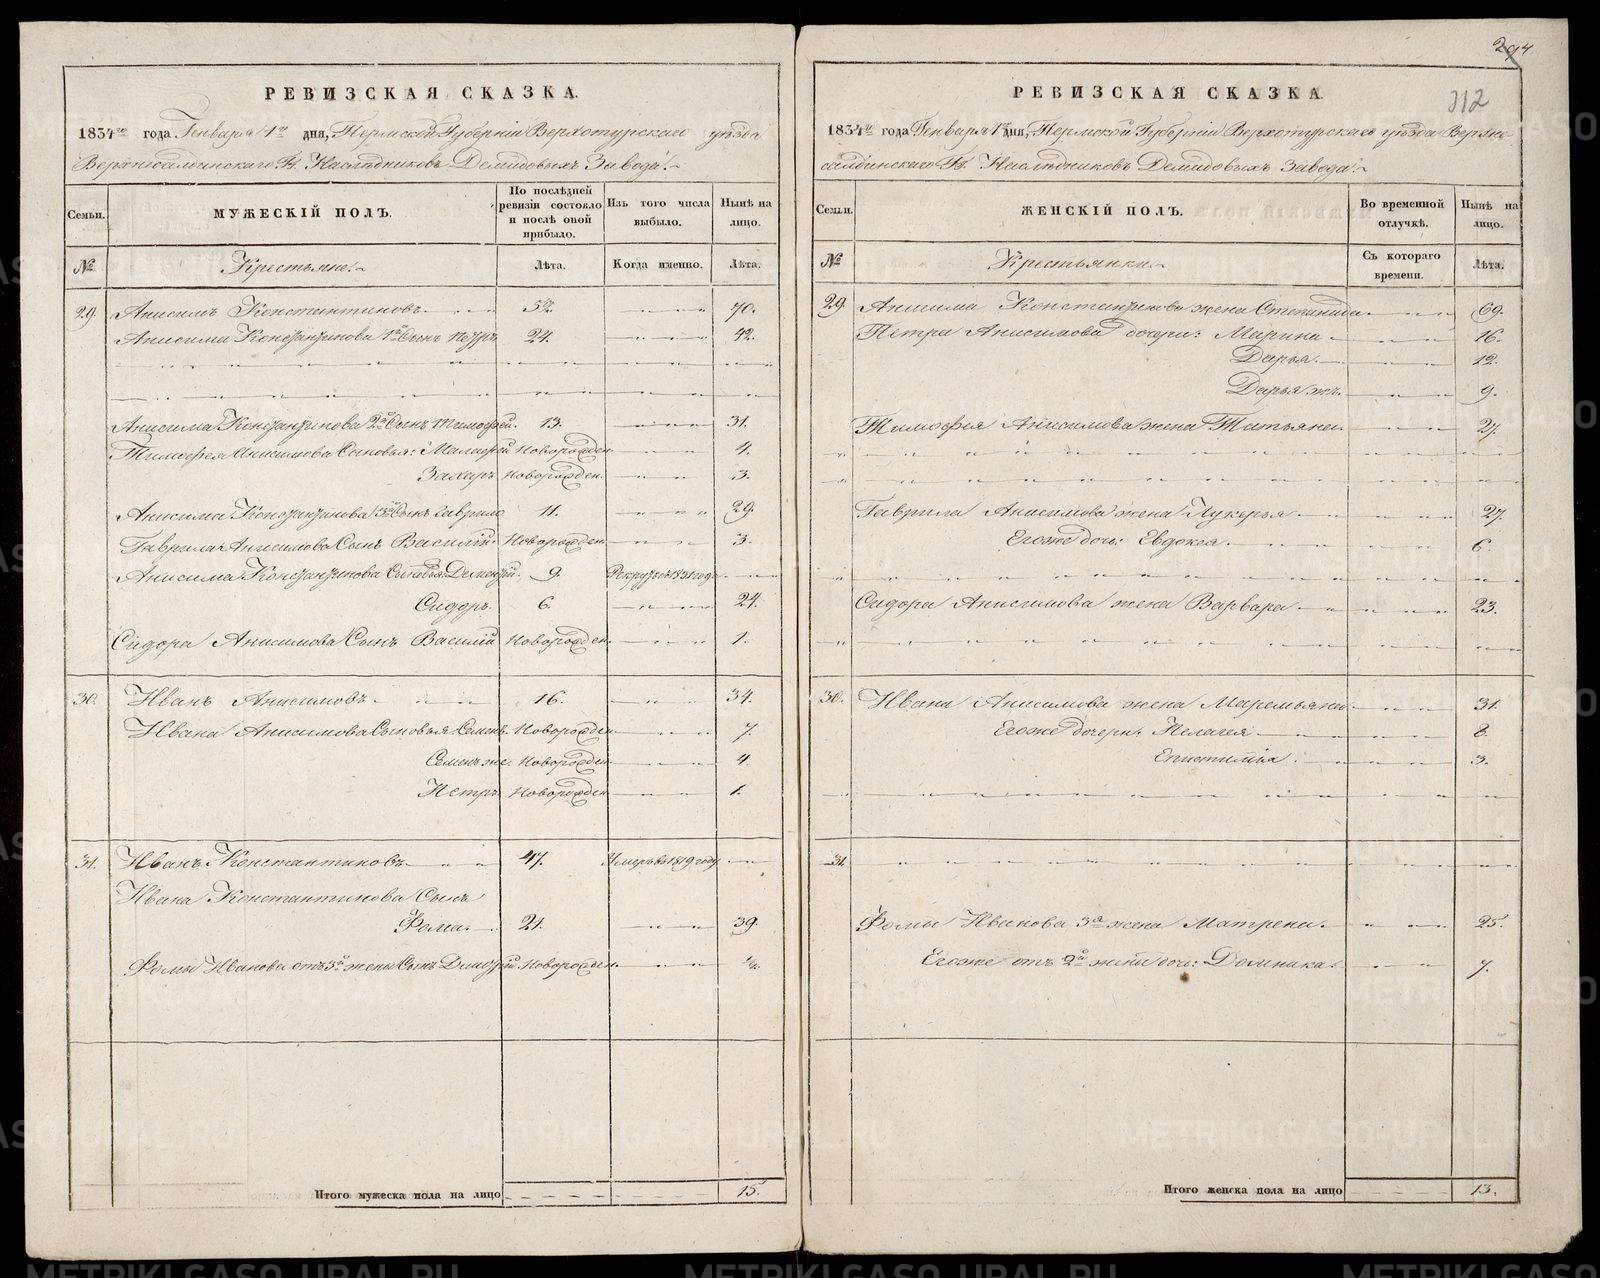 РЕВИЗСКАЯ СКАЗКА.
1834го года Генваря 1го дня, Пермской Губерніи Верхотурскаго уѣзда
Верхнесалдинскаго Гг. Наслѣдниковъ Демидовыхъ Завода.
Семьи. МУЖЕСКІЙ ПОЛЪ. По послѣдней ревизіи состояло и послѣ оной прибыло. Изъ того числа выбыло. Нынѣ на лицо.
№ Крестьяне. Лѣта. Когда именно. Лѣта.
29. Анисимъ Константиновъ 52. 70.
Анисима Константинова 1й Сынъ Петръ 24. 42.
Анисима Константинова 2й Сынъ Тимофей. 13. 31.
Тимофея Анисимова Сыновья: Малафей Новорожден. 4.
Захаръ Новорожден. 3.
Анисима Константинова 3й Сынъ Гаврило 11. 29.
Гаврила Анисимова Сынъ Василій Новорожден. 3.
Анисима Константинова Сыновья Дементій. 9. Рекрутъ въ 1831 годе
Сидоръ 6. 24.
Сидора Анисимова Сынъ Василій Новорожден. 1.
30. Иванъ Анисимовъ 16. 34.
Ивана Анисимова Сыновья Семенъ Новорожден 7.
Семенъ же. Новорожден 4
Петръ Новорожден 1.
31. Иванъ Константиновъ 47. Умеръ въ 1819 году
Ивана Константинова Сынъ
Фома. 21. 39.
Фомы Иванова отъ 3й жены Сынъ Дмитрій Новорожден
Итого мужеска пола на лицо 15.
294
312
РЕВИЗСКАЯ СКАЗКА
1834го года Генваря 1го дня, Пермской Губерніи Верхотурскаго уѣзда Верхне-
салдинскаго Гг. Наслѣдниковъ Демидовыхъ Завода.
Семьи. ЖЕНСКІЙ ПОЛЪ. Во временной отлучкѣ. Нынѣ на лицо.
№ Крестьянки. Съ котораго времени. Лѣта.
29 Анисима Константинова жена Степанида 69.
Петра Анисимова дочери: Марина 16.
Дарья 12.
Дарья же. 9.
Тимофея Анисимова жена Татьяна 27.
Гаврила Анисимова жена Лукерья 27.
Егоже дочь: Евдокея 6.
Сидора Анисимова жена Варвара 23.
30. Ивана Анисимова жена Маремьяна 31.
Егоже дочери: Пелагея 8.
Епистимія 3.
31.
Фомы Иванова 3я жена Матрена. 25.
Егоже отъ 2й жены дочь: Домника. 7.
Итого женска пола на лицо 13.